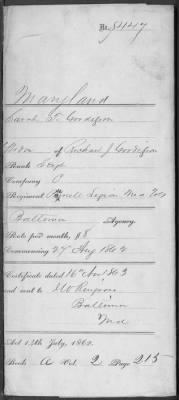 No. 8447
Maryland
Sarah E. Goodison
Widow of Richard J. Goodison
Rank
Company C
Regiment Purnell Legion Md Vols
Baltimore Agency.
Rate paid month, $8
Commencing 27 Aug 1862
Certificate dated 16 Nov 1863
and sent to
Baltimore
Md
Act 14th July, 1862.
Book A Vol. 2 Page 215